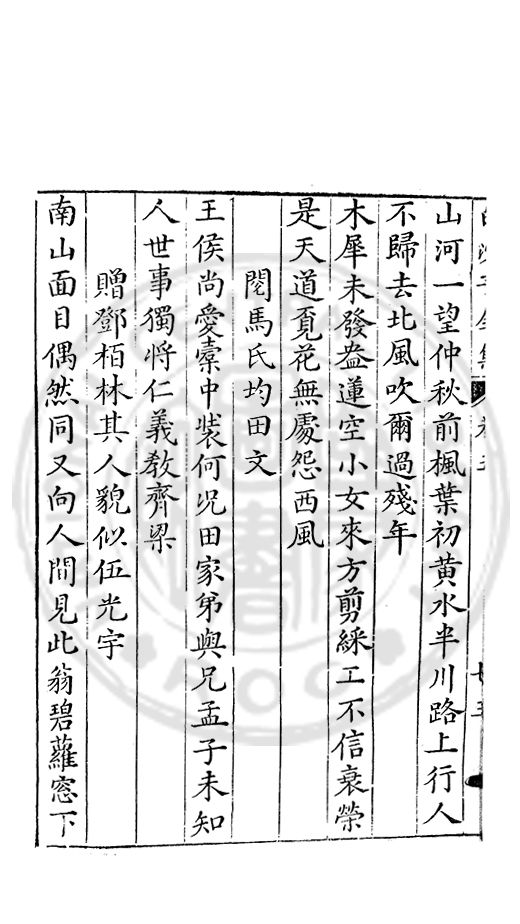 白沙子全集
山河一望仲秋前楓葉初黄水半川路上行人
不歸去北風吹爾過殘年
木犀未發盎蓮空小女來方剪綵工不信衰榮
是天道覔花無處怨西風
閱馬氏均田文
王侯尚愛橐中装何况田家弟與兄孟子未知
人世事獨將仁義教齊梁
贈鄧栢林其人貌似伍光宇
南山面目偶然同又向人間見此翁碧蘿窓下